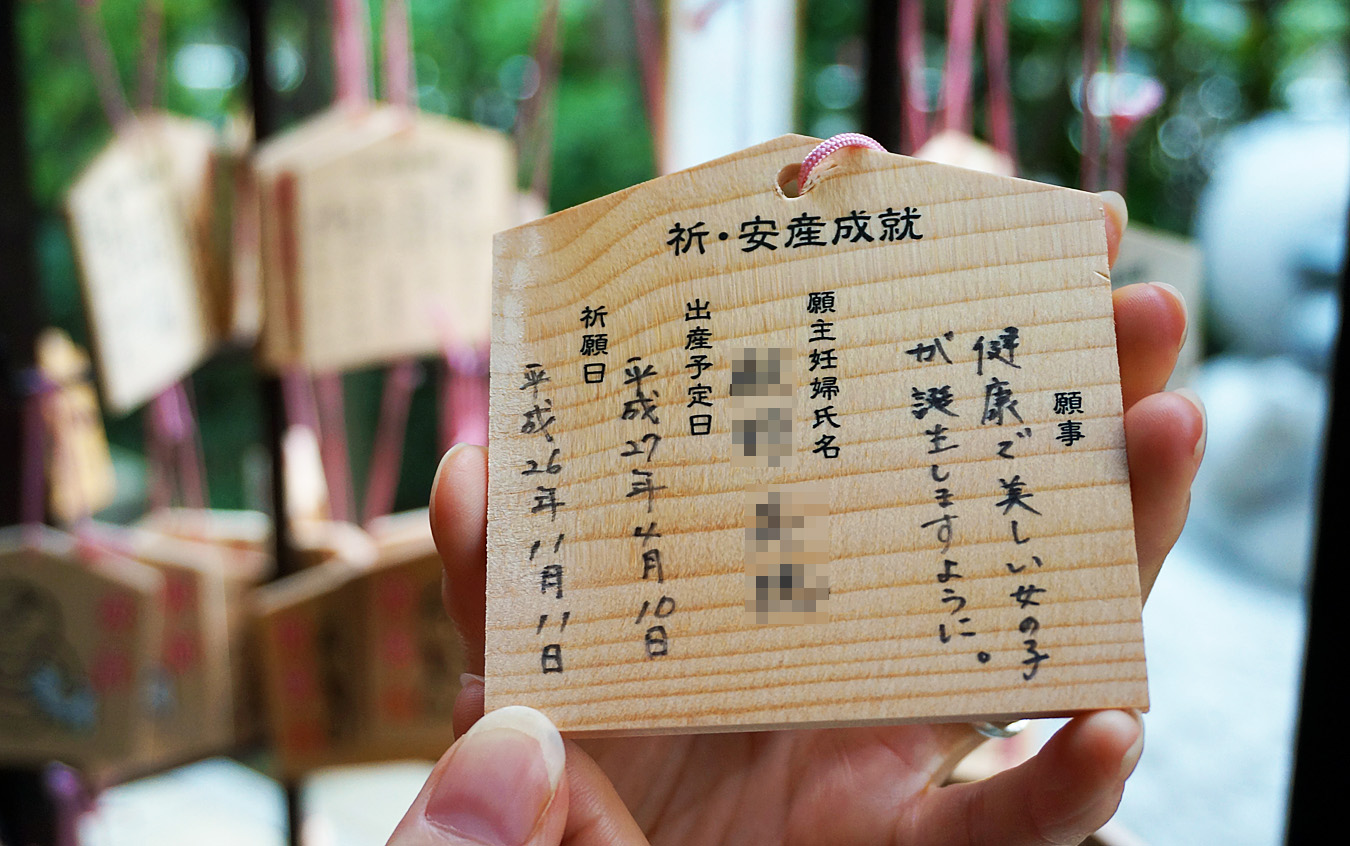 祈・安産成就
願事
健康で美しい女の子
が誕生しますように。
願主妊婦氏名
出産予定日
平成27年4月10日
祈願日
平成26年11月11日